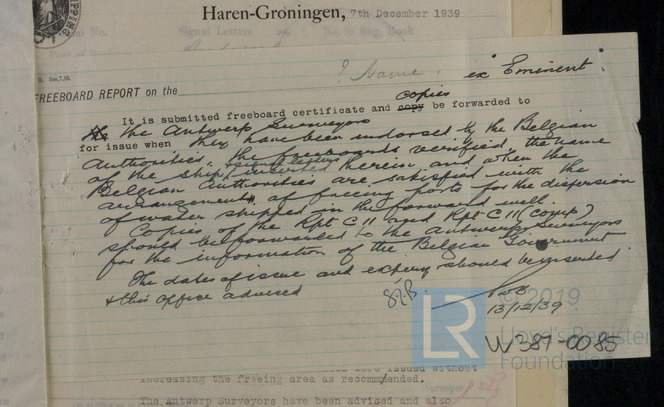 Haren-Groningen, 7th December 1939
Signal Letters No. in Reg. Book
? Name. ex "Eminent".
FREEBOARD REPORT on the
copies
It is submitted freeboard certificate and copy be forwarded to
the Antwerp Surveyors
for issue when they have been endorsed by the Belgian
Authorities, "the freeboards verified", the name
signal letters
of the ship inserted therein and when the
Belgian Authorities are satisfied with the
arrangements of freeing ports for the dispersion
of water shipped in the forward well.
Copies of the Rpt C 11 and Rpt C 11 (comp)
should be forwarded to the Antwerp Surveyors
for the information of the Belgian Government
The dates of issue and expiry should be inserted
& this office advised
13/12/39.
LR © 2019
Lloyd's Register
Foundation
W387-0085
were issued without
increasing the freeing area as recommended.
The Antwerp Surveyors have been advised and also